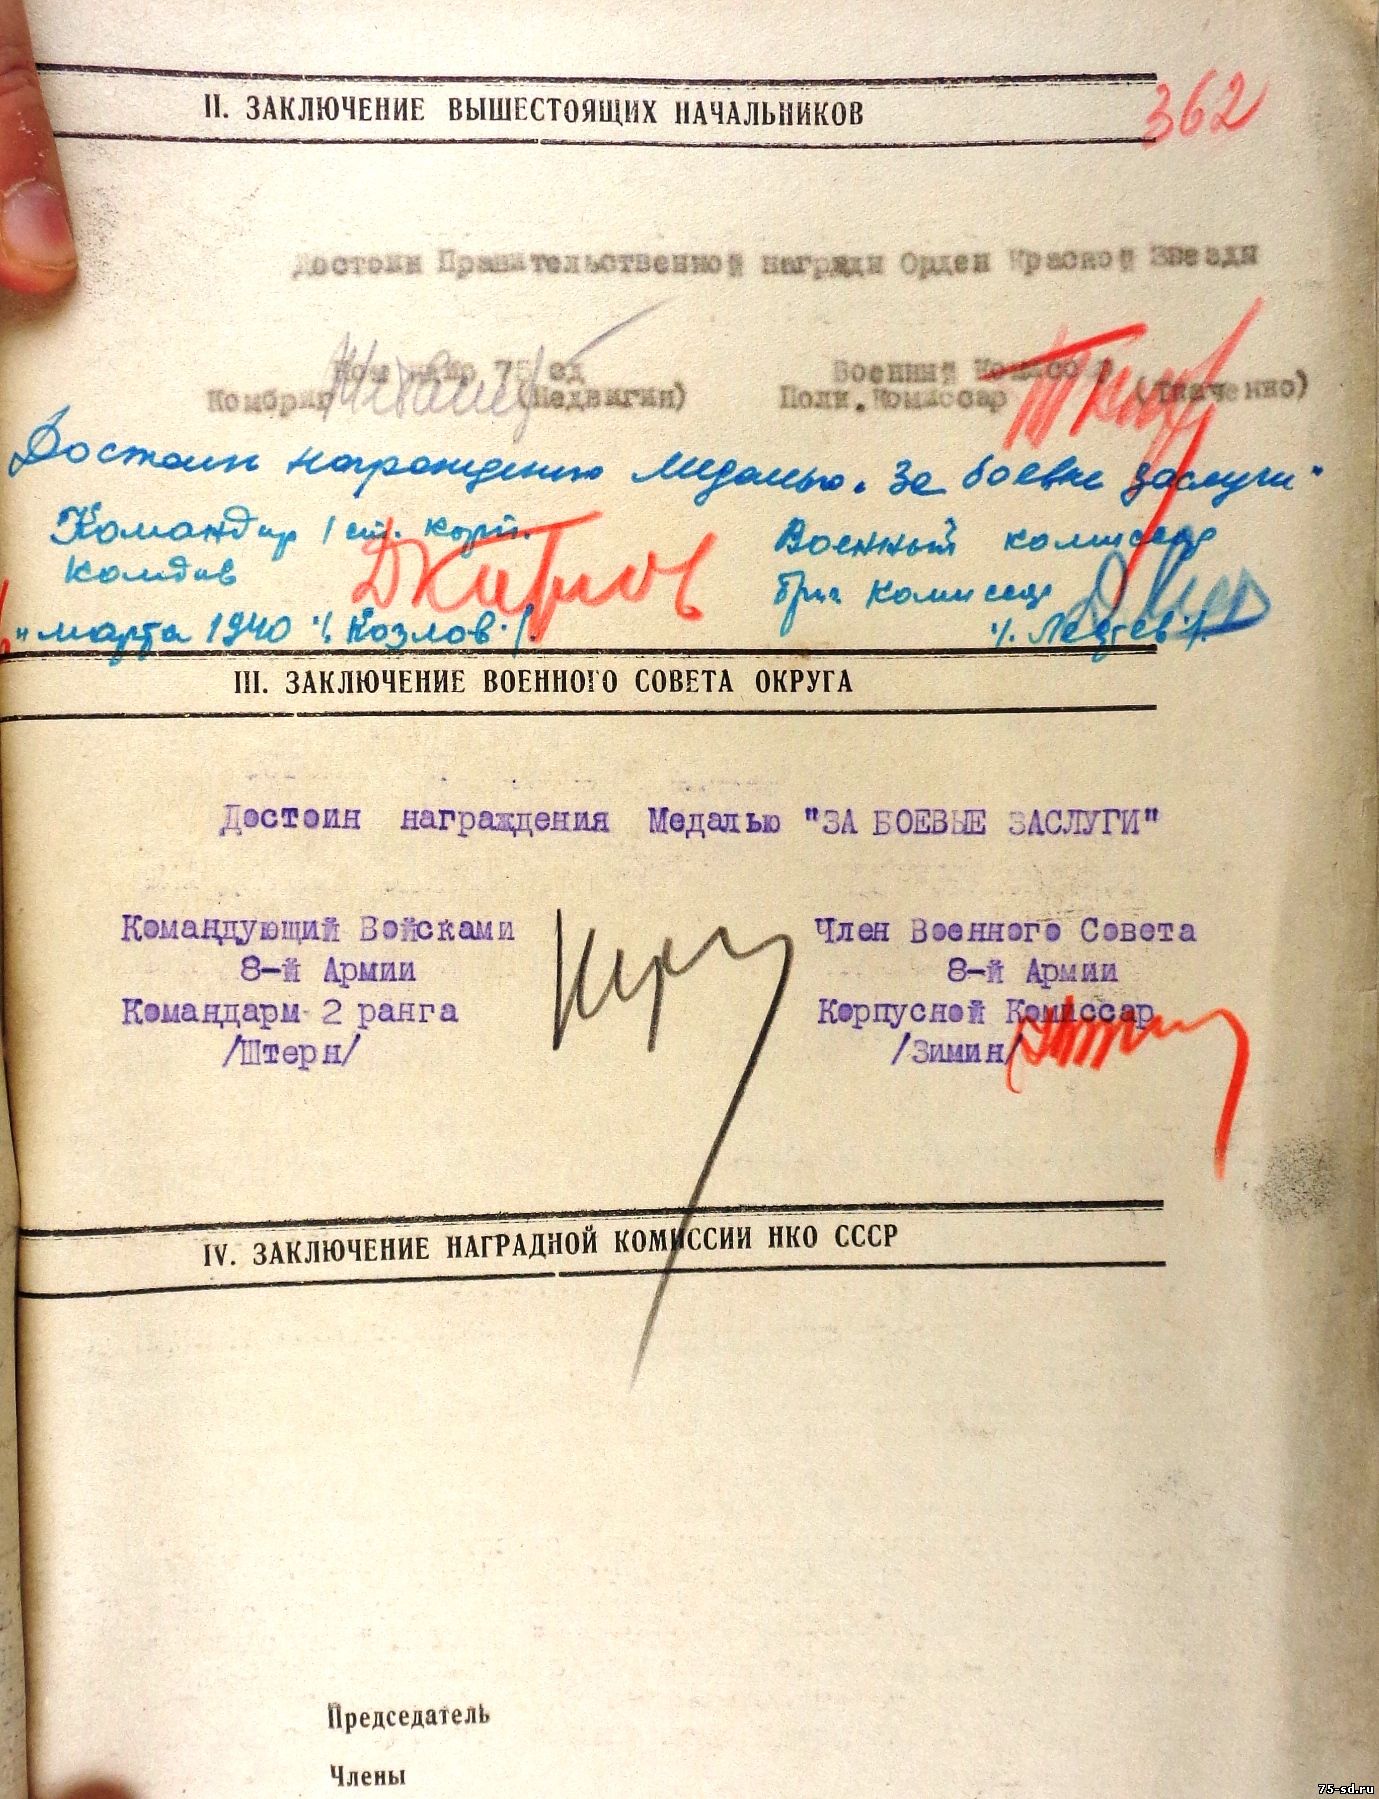 362
II. ЗАКЛЮЧЕНИЕ ВЫШЕСТОЯЩИХ НАЧАЛЬНИКОВ
Достоин Правительственной награди Орден Красной Звезди
Ком 75 сд Военний Комиссар
Комбриг (Недвигин) Полк.Комиссар (Ткаченко)
Достоин награждению медалью "За боевые заслуги"
Командир 1 ст. корп. Военный комиссар
комдив бриг комиссар
" марта 1940 /Козлов/
III. ЗАКЛЮЧЕНИЕ ВОЕННОГО СОВЕТА ОКРУГА
Достоин награждения Медалью "ЗА БОЕВЫЕ ЗАСЛУГИ"
Командующий Войсками Член Военного Совета
8-й Армии 8-й Армии
Командарм 2 ранга Корпусной Комиссар
/Штерн/ /Зимин/
IV. ЗАКЛЮЧЕНИЕ НАГРАДНОЙ КОМИССИИ НКО СССР
Председатель
Члены
75-sd.ru